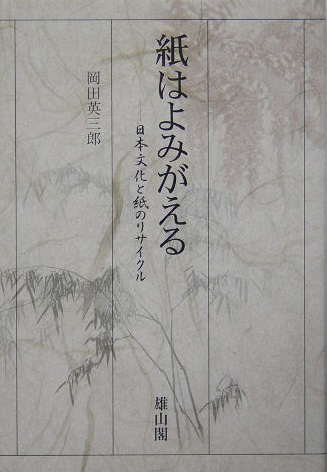 紙はよみがえる
日本文化と紙のリサイクル
岡田英三郎
雄山閣